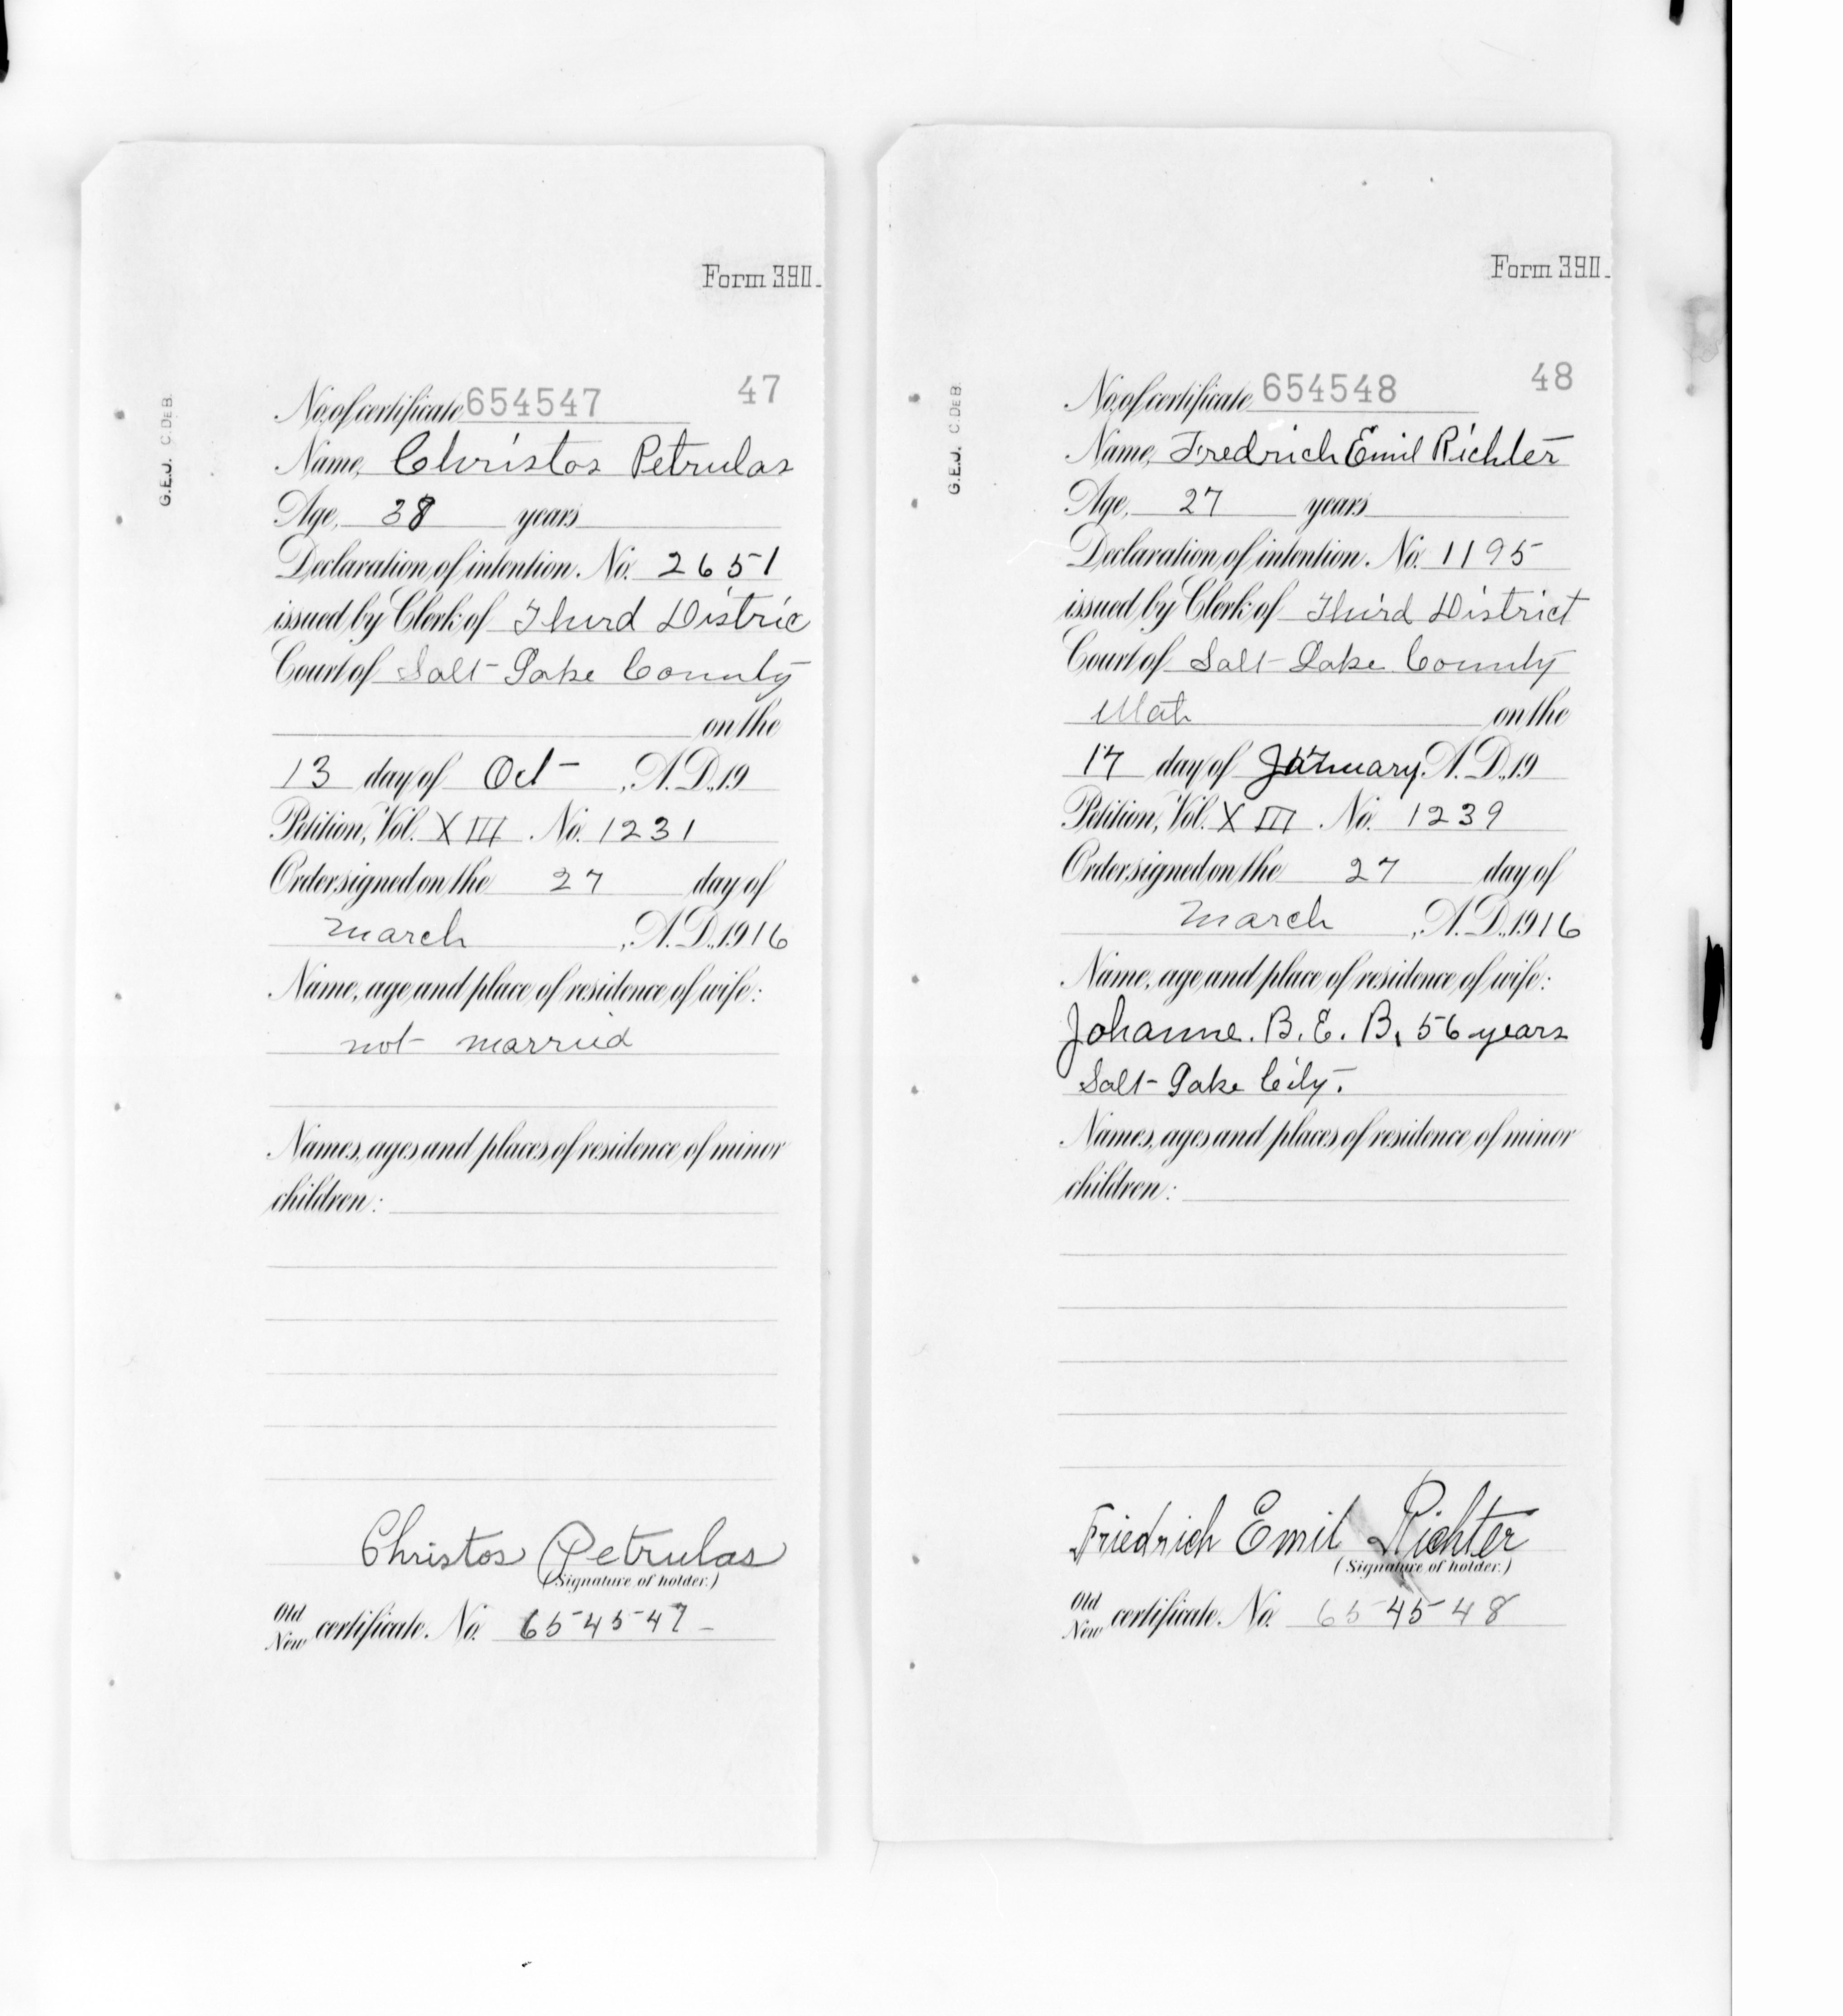 Form 390.
G.E.J. C.DEB.
No. of certificate 654547 47
Name, Christos Petrulas
Age, 38 years
Declaration of intention. No. 2651
issued by Clerk of Third Distric
Court of Salt Lake County
on the
13 day of Oct , A.D., 19
Petition, Vol. XIII No. 1231
Order signed on the 27 day of
March , A.D., 1916
Name, age and place of residence of wife:
not married
Names, ages and places of residence of minor
children:
Christos Petrulas
(Signature of holder.)
Old
New certificate. No. 654547
Form 390.
G.E.J. C.DEB.
No. of certificate 654548 48
Name, Fredrich Emil Richter
Age, 27 years
Declaration of intention. No. 1195
issued by Clerk of Third District
Court of Salt Lake County
Utah on the
17 day of January, A.D., 19
Petition, Vol. XIII No. 1239
Order signed on the 27 day of
March , A.D., 1916
Name, age and place of residence of wife:
Johanne. B. E. B, 56 years
Salt Lake City.
Names, ages and places of residence of minor
children:
Friedrich Emil Richter
(Signature of holder.)
Old
New certificate. No. 654548